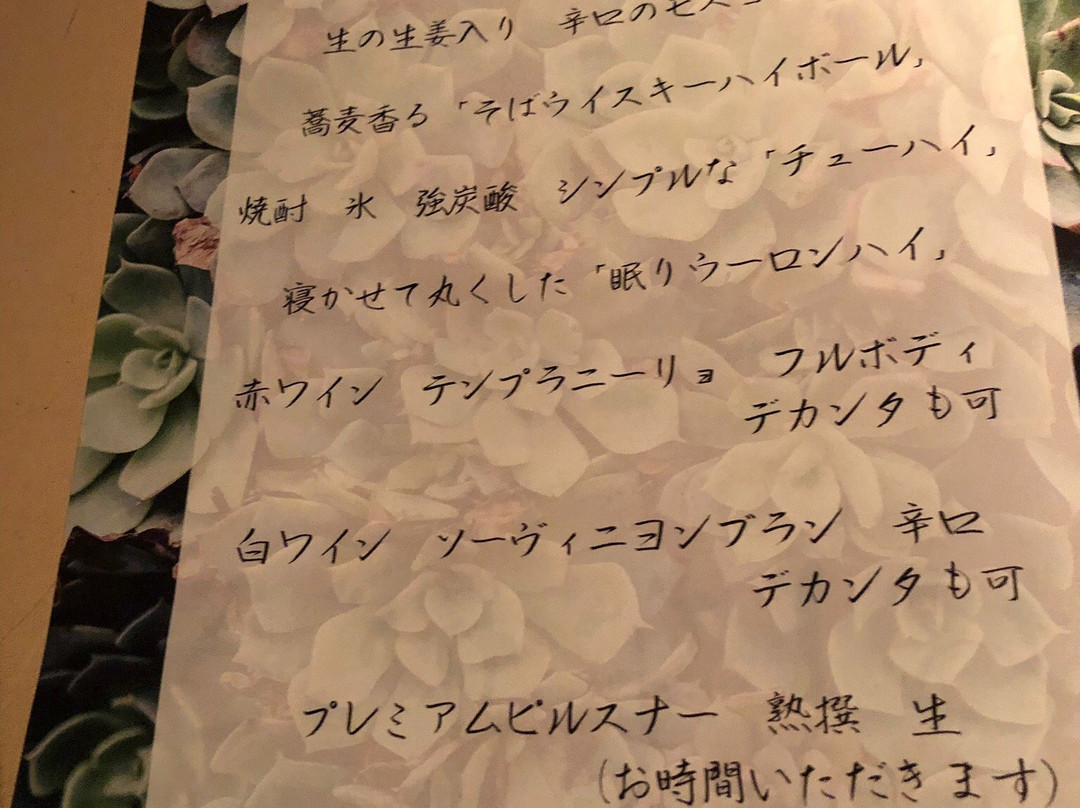 生の生姜入り　辛口のモスコ
蕎麦香る「そばウイスキーハイボール」
焼酎　氷　強炭酸　シンプルな「チューハイ」
寝かせて丸くした「眠りウーロンハイ」
赤ワイン　テンプラニーリョ　フルボディ
デカンタも可
白ワイン　ソーヴィニヨンブラン　辛口
デカンタも可
プレミアムピルスナー　熟撰　生
(お時間いただきます)